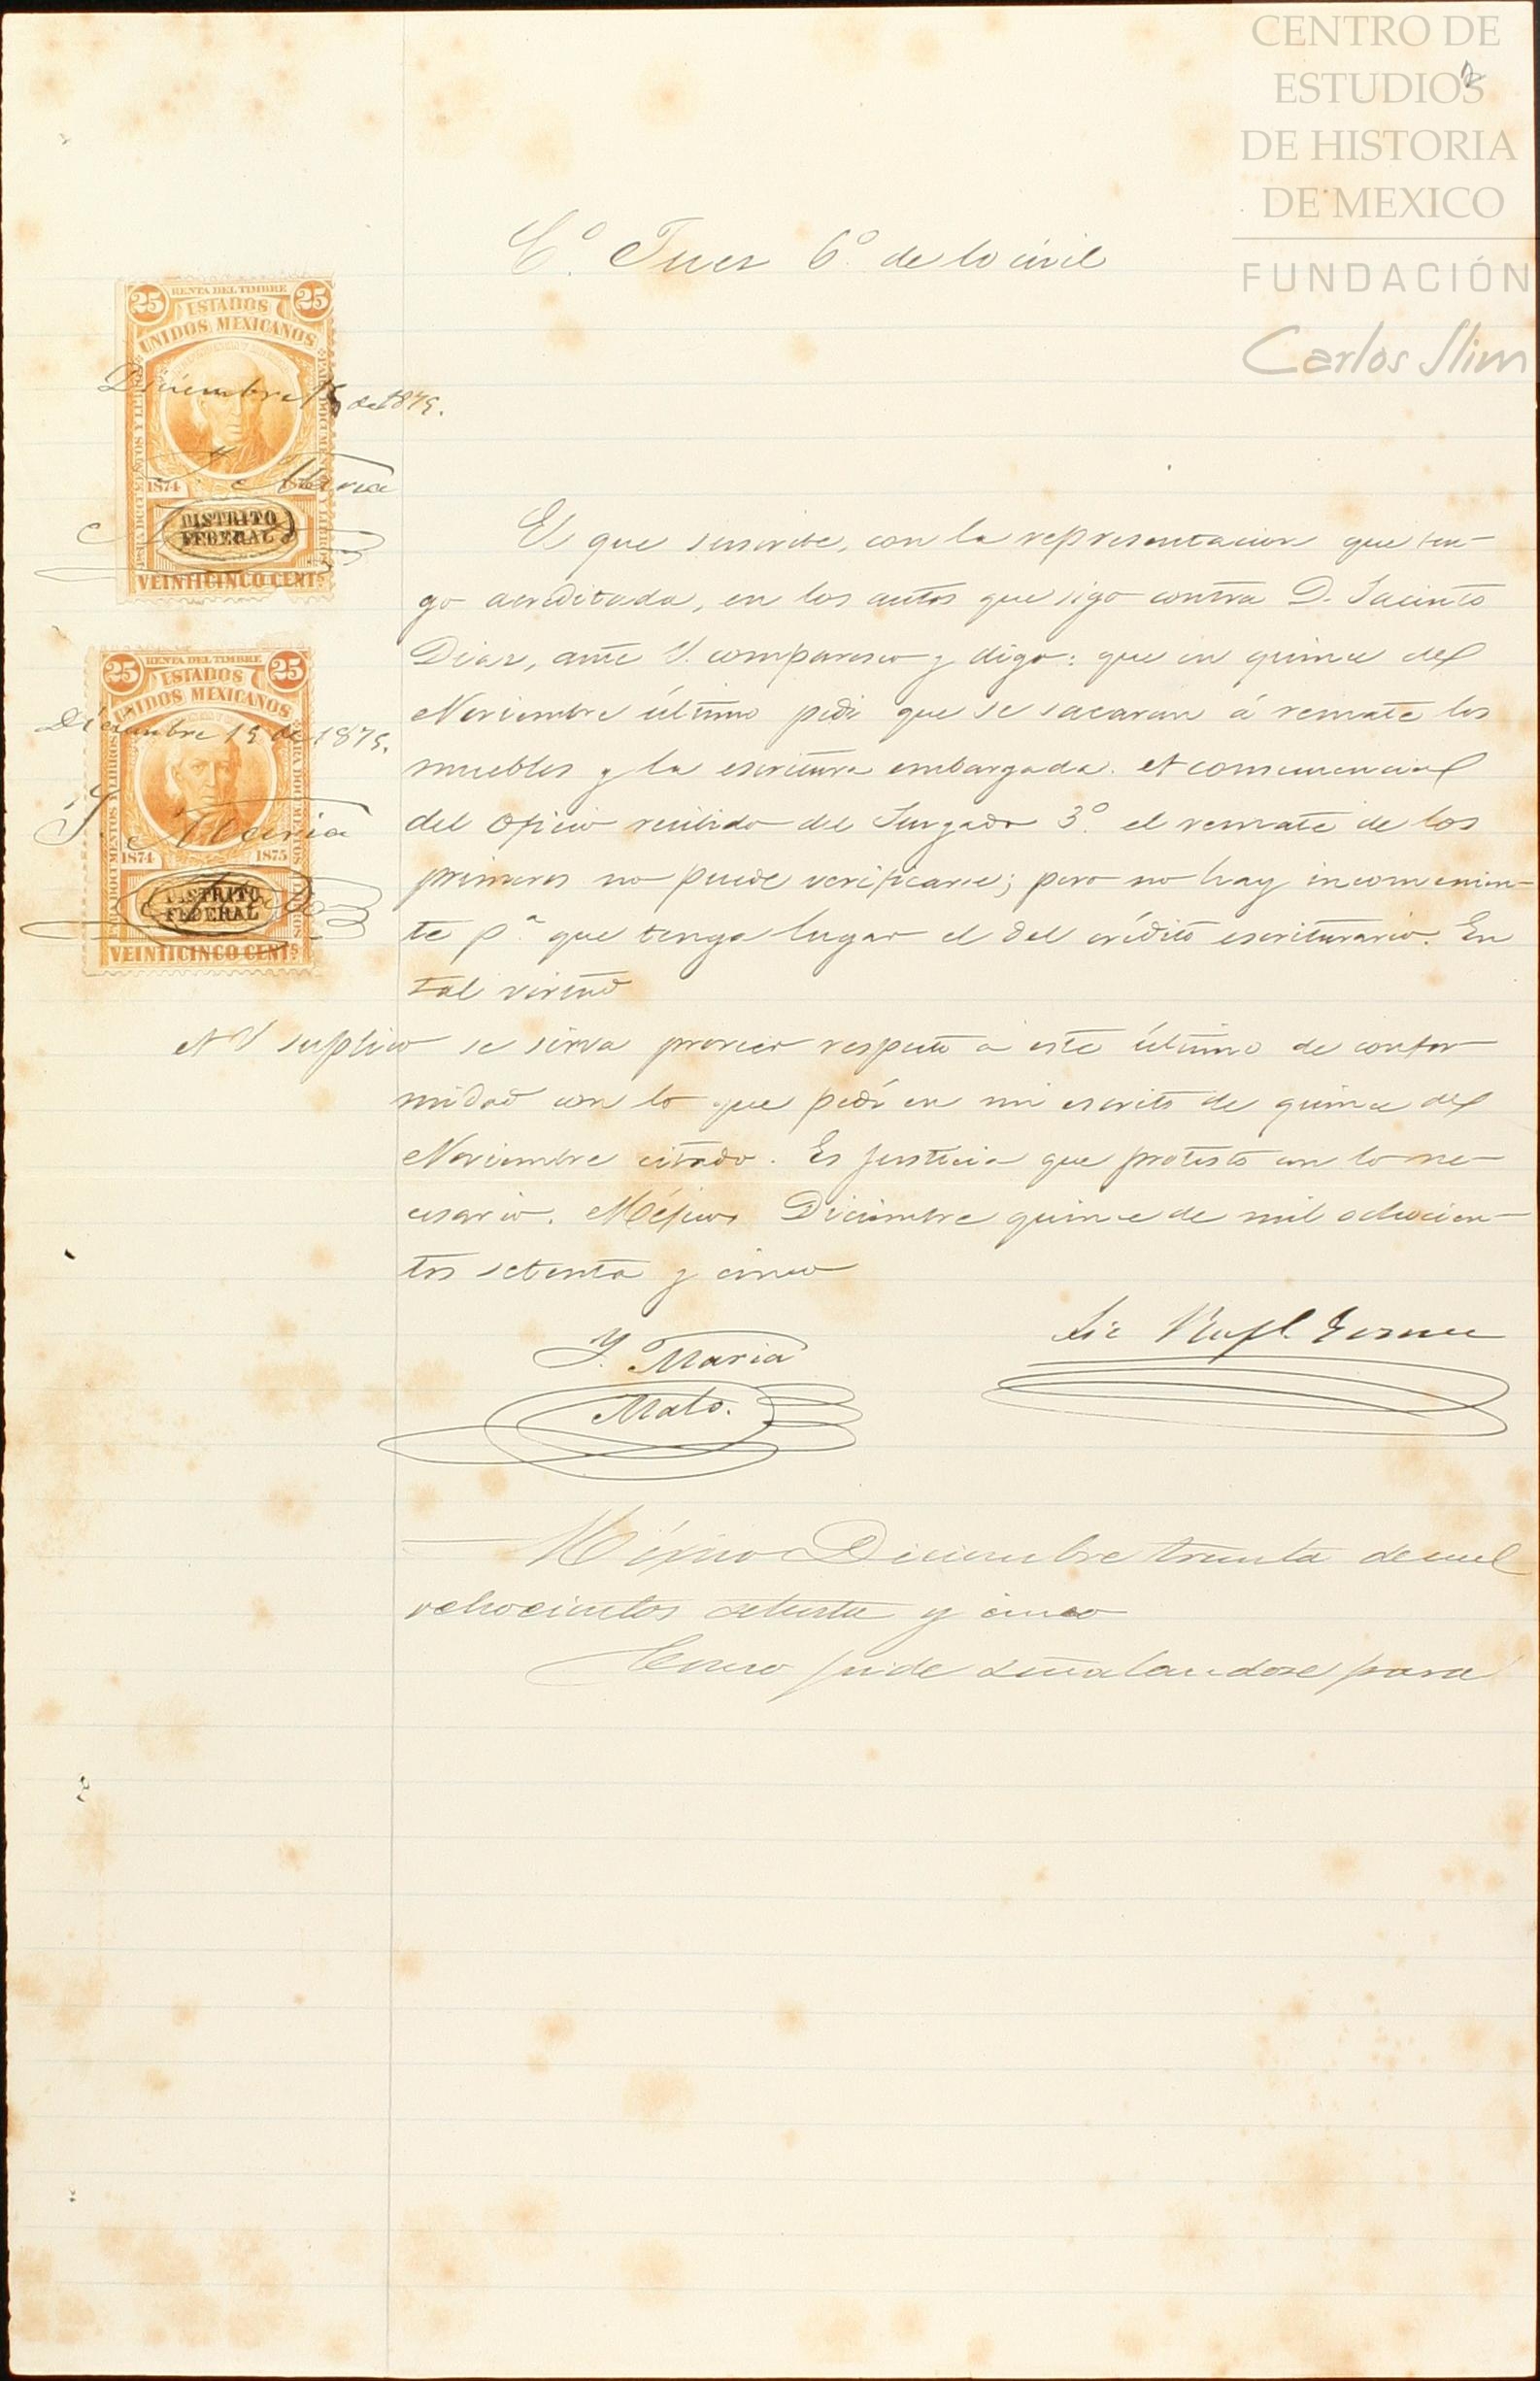 CENTRO DE
ESTUDIOS
DE HISTORIA
DE MEXICO
FUNDACIÓN
Carlos Slim
C.º Juez 6º de lo civil
25 RENTA DEL TIMBRE 25
ESTADOS
UNIDOS MEXICANOS
Diciembre 15 de 1875.
1874
DISTRITO
FEDERAL
VEINTICINCO CENTS
25 RENTA DEL TIMBRE 25
ESTADOS
UNIDOS MEXICANOS
Diciembre 15 de 1875.
Y. Maria
1874 1875
DISTRITO
FEDERAL
VEINTICINCO CENTS
El que suscribe, con la representacion que ten-
go acreditada, en los autos que sigo contra D. Jacinto
Diaz, ante V. comparesco y digo: que en quince del
Noviembre último pedí que se sacaran á remate los
muebles y la escritura embargada. A consecuencia
del oficio recibido del Juzgado 3º. el remate de los
primeros no puede verificarse; pero no hay inconvenien-
te pª que tenga lugar el del crédito escriturario. En
tal virtud
A V suplico se sirva proveer respecto a este último de confor
midad con lo que pedí en mi escrito de quince del
Noviembre citado. Es justicia que protesto en lo ne-
cesario. Méjico Diciembre quince de mil ochocien-
tos setenta y cinco
Y. Maria
Mato.
Lic Rafl.
México Diciembre treinta de mil
ochocientos setenta y cinco
Como pide señalandose para